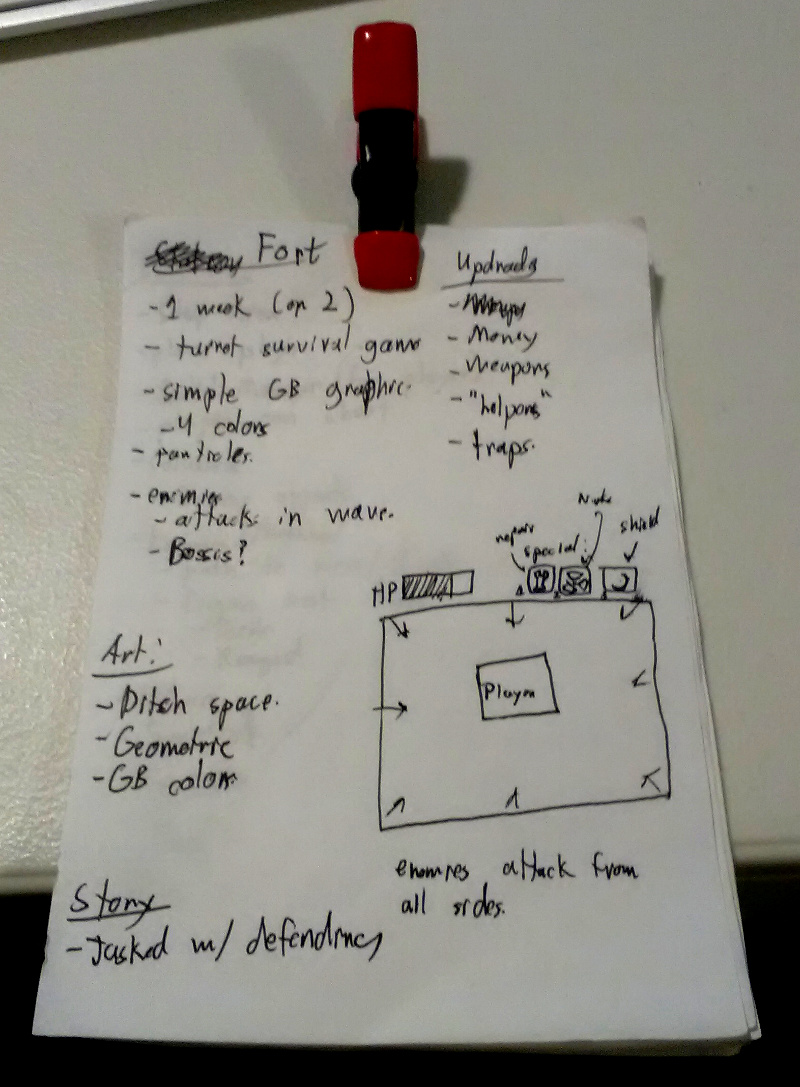 Fort
- 1 week (or 2)
- turret survival game
- simple GB graphic.
- 4 colors
- particles.
- enemies
- attack in wave.
- Bosses?
Upgrades
- Money
- weapons
- "helpers"
- traps.
Art:
- Ditch space.
- Geometric
- GB colors
Story
- Tasked w/ defending
Nuke
repair special: shield
HP
Player
enemies attack from
all sides.